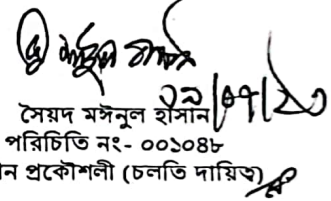 ১৯/০৭/২০
সৈয়দ মঈনুল হাসান
পরিচিতি নং- ০০১০৪৮
ন প্রকৌশলী (চলতি দায়িত্ব)